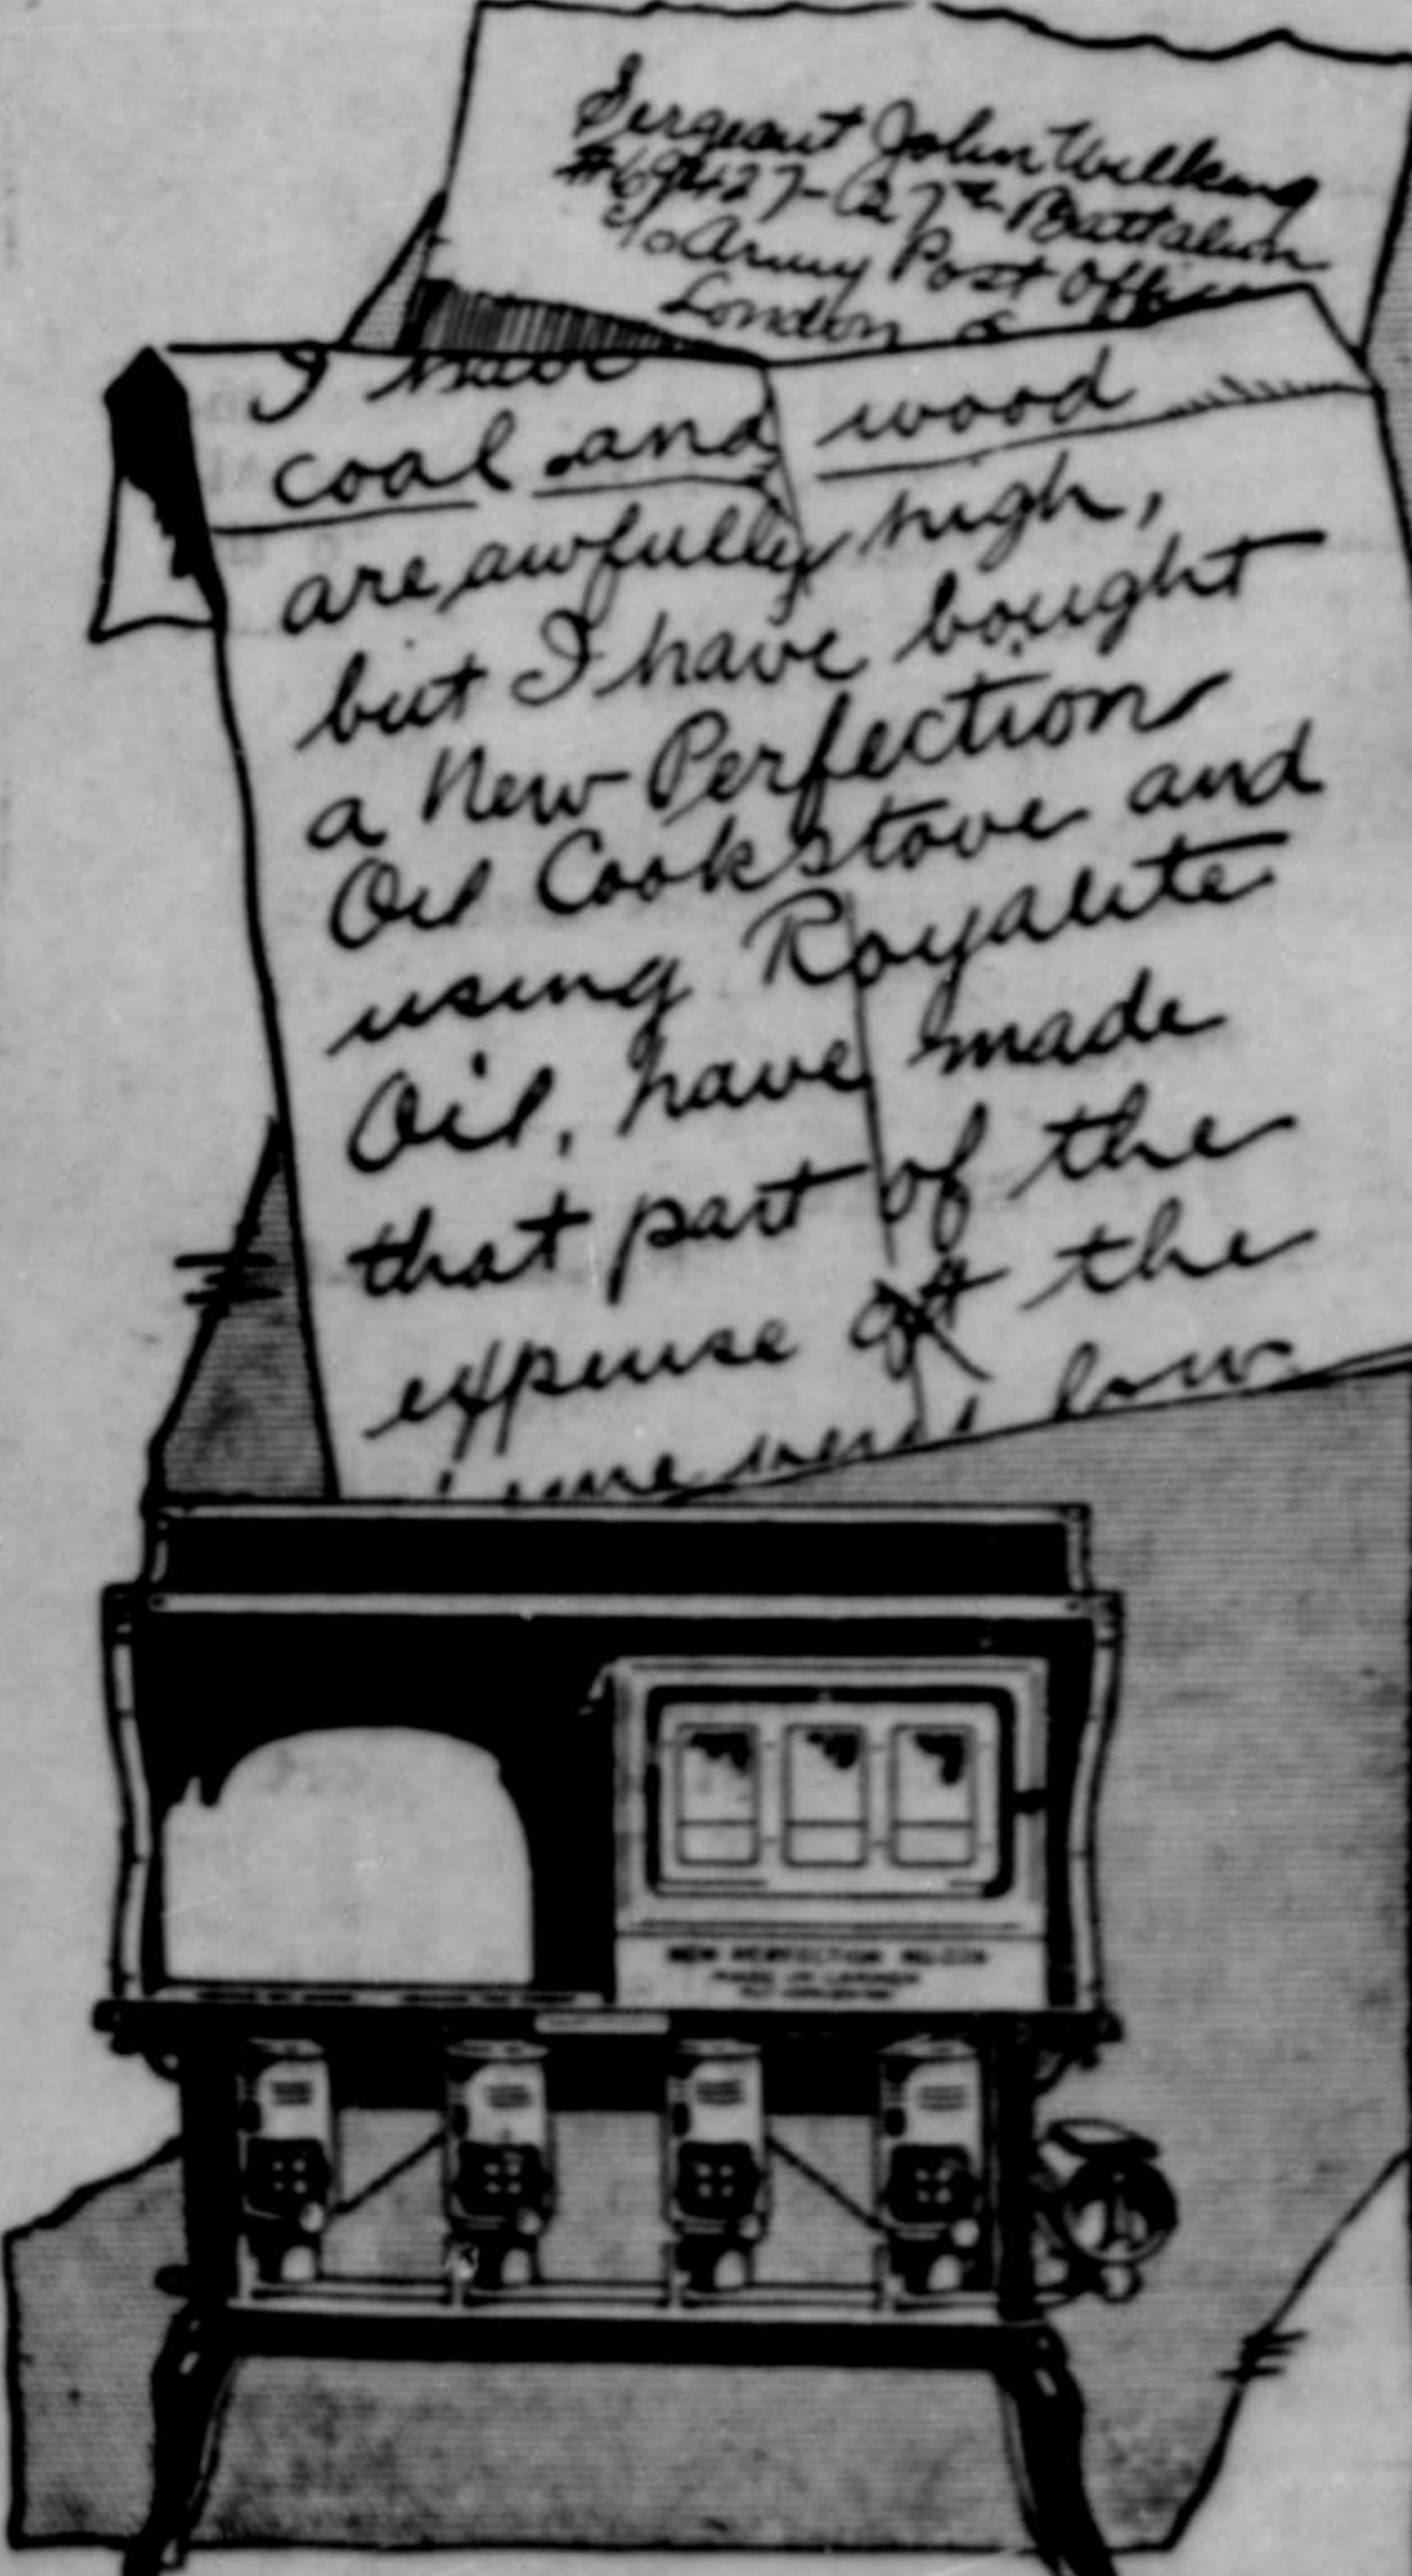 Sergeant John Wilkins
#69427-27th Battalion
c/o Army Post Office
London
I have
coal and wood
are awfully high,
but I have bought
a New Perfection
Oil Cookstove and
using Royalite
Oil, have made
that part of the
expense of the
home very low
NEW PERFECTION